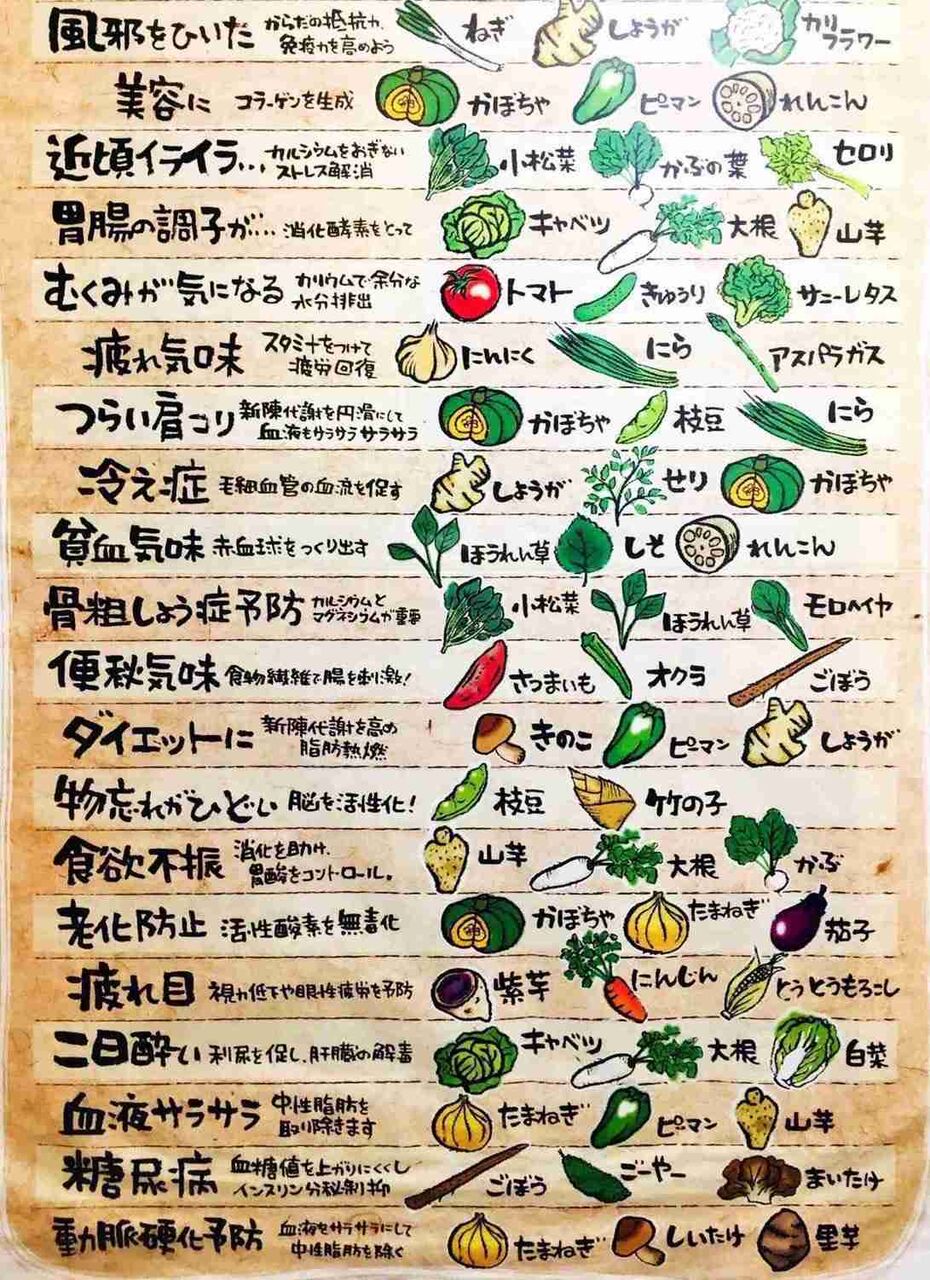 風邪をひいた からだの抵抗力、 ねぎ しょうが カリ
免疫力を高めよう フラワー
美容に コラーゲンを生成 かぼちゃ ピーマン れんこん
近頃イライラ… カルシウムをおぎない 小松菜 かぶの葉 セロリ
ストレス解消
胃腸の調子が… 消化酵素をとって キャベツ 大根 山芋
むくみが気になる カリウムで余分な トマト きゅうり サニーレタス
水分排出
疲れ気味 スタミナをつけて にんにく にら アスパラガス
疲労回復
つらい肩コリ 新陳代謝を円滑にして かぼちゃ 枝豆 にら
血液もサラサラサラサラ
冷え症 毛細血管の血流を促す しょうが せり かぼちゃ
貧血気味 赤血球をつくり出す ほうれん草 しそ れんこん
骨粗しょう症予防 カルシウムと 小松菜 ほうれん草 モロヘイヤ
マグネシウムが重要
便秋気味 食物繊維で腸を刺激! さつまいも オクラ ごぼう
ダイエットに 新陳代謝を高め きのこ ピーマン しょうが
脂肪熱燃
物忘れがひどい 脳を活性化! 枝豆 竹の子
食欲不振 消化を助け、 山芋 大根 かぶ
胃酸をコントロール。
老化防止 活性酸素を無毒化 かぼちゃ たまねぎ 茄子
疲れ目 視力低下や眼性疲労を予防 紫芋 にんじん とうとうもろこし
二日酔い 利尿を促し、肝臓の解毒 キャベツ 大根 白菜
血液サラサラ 中性脂肪を たまねぎ ピーマン 山芋
取り除きます
糖尿病 血糖値を上がりにくくし ごぼう ごーやー まいたけ
インスリン分秘制抑
動脈硬化予防 血液をサラサラにして たまねぎ しいたけ 里芋
中性脂肪を除く